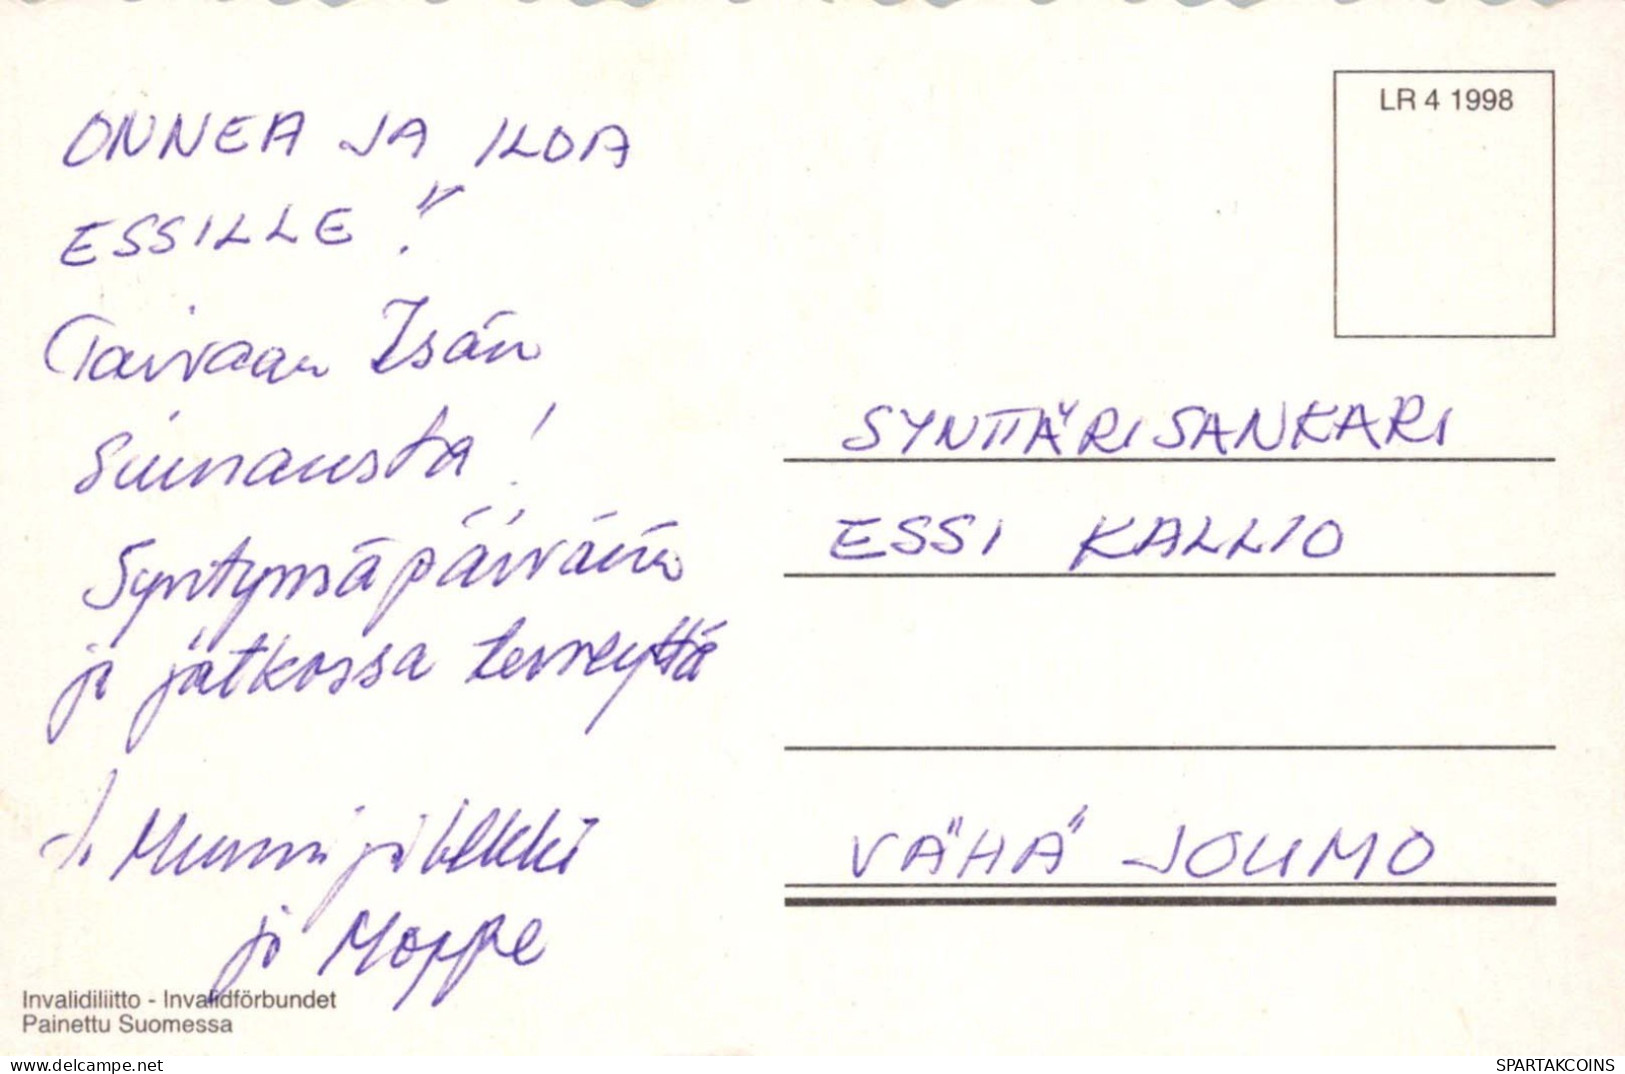 LR 4 1998
ONNEA JA ILOA
ESSILLE!!
Taivaan Isän
Siunausta!
Syntymäpäivään
ja jatkossa terveyttä
t. Mummi ja Ukki
ja Moppe
SYNTTÄRISANKARI
ESSI KALLIO
VÄHÄ JOUMO
Invalidiliitto - Invalidförbundet
Painettu Suomessa
https://www.delcampe.net
SPARTAKCOINS